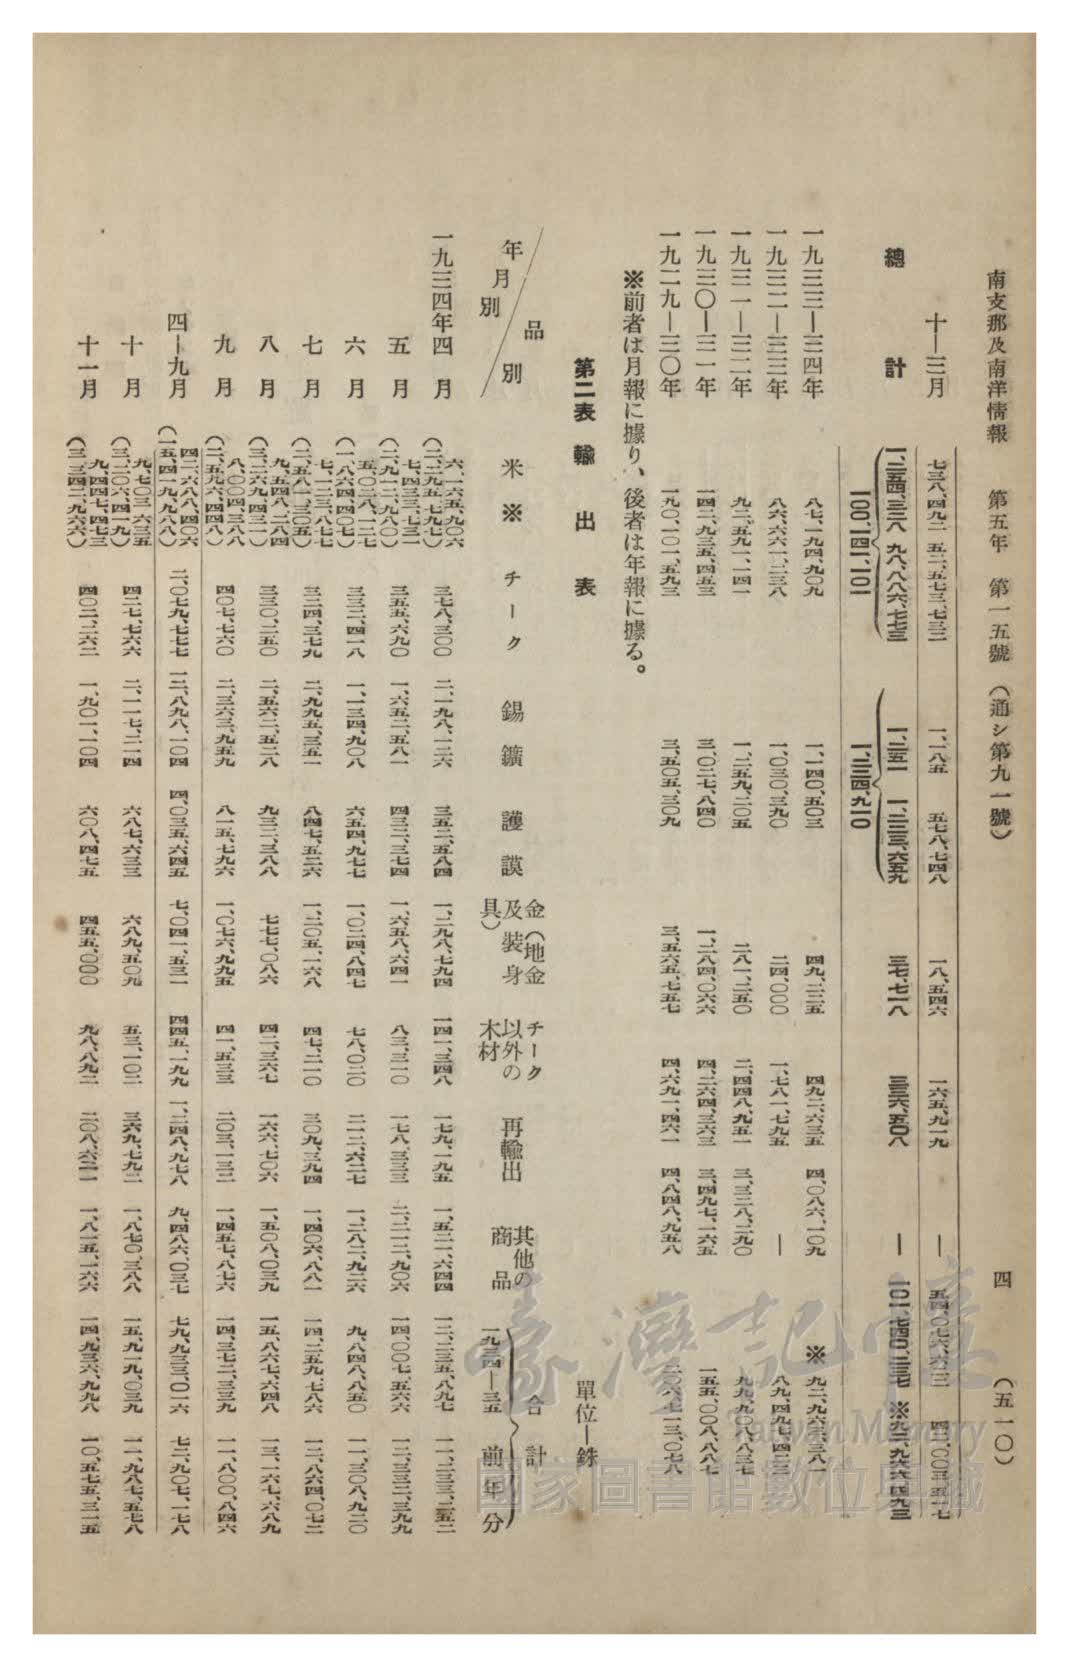 南支那及南洋情報　第五年　第一五號（通シ第九一號）　四　（五一〇）
十―三月　七三八、四九二　五二、五七三、七三二　一、一八五　五七八、七四八　一八、五四六　一六五、九一九　―　五四、〇七六、六三三
總計　九八、八八六、七七三　三七、七一八　三三六、五〇八　―　一〇一、七四〇、三三七
一〇〇、一四一、一〇一　一、二三四、九一〇
一九三三―三四年　八七、一九四、九〇九　一、一四〇、五〇三　四九、二三五　四九二、六三五　四、〇八六、一〇九　※九二、九六三、三八一
一九三二―三三年　八六、六六一、二三八　一、〇三〇、三九〇　二四、〇〇〇　一、七八一、七九五　―　八九、四九七、四二三
一九三一―三二年　九二、五九一、一四一　一、二五九、二〇五　二八一、二五〇　二、四四八、九五一　三、三二八、二九〇　九九、九〇八、八三七
一九三〇―三一年　一四二、九三五、四五三　三、〇二七、八四〇　一、二八四、〇六六　四、二六四、三六三　三、四九七、一六五　一五五、〇〇八、八八七
一九二九―三〇年　一九〇、一〇一、五九三　三、五〇五、三〇九　三、五六五、七五七　四、六九一、四六一　四、八四八、九五八　二〇六、七一三、〇七八
※前者は月報に據り、後者は年報に據る。
第二表　輸出表　單位―銖
年月別／品別　米※　チーク　錫鑛　護謨　金（地金及裝身具）　チーク以外の木材　再輸出　其他の商品　合計（一九三四―三五　前年分）
一九三四年四月　六、一六五、九〇六（二、二九五、七九七）　三七八、三〇〇　二、一九八、一二六　三五二、五八四　一、二九八、七九四　一四一、三四八　一七九、一九五　一、五二一、六四四　一二、二三五、八九七　一一、二三三、二五二
五月　七、四三三、七三一（二、九一二、九八〇）　三五五、六九〇　一、六五二、五八一　四三二、三七四　一、六五八、六四一　八三、三一〇　一七八、三三三　二、二一二、九〇六　一四、〇〇七、五六六　一三、三三二、三九九
六月　五、〇二八、一二七（一、八六四、四〇七）　三三二、四一八　一、一三四、九〇八　六五四、九七七　一、〇二四、八四七　七八、〇二〇　二一二、六二七　一、二八二、九二六　九、八四八、八五〇　一一、三〇八、九二〇
七月　七、一二三、八七七（二、五八一、三〇五）　三二四、三七九　二、九九五、三五一　八四七、五二六　一、二〇五、一六八　四七、二一〇　三〇九、三九四　一、四〇六、八八一　一四、二五九、七八六　一二、八六四、〇七二
八月　九、五四八、二八四（三、二六九、四三一）　三三〇、二五〇　二、五六二、五二八　九三二、三八八　七七七、〇八六　四二、三六七　一六六、七〇六　一、五〇八、〇三九　一五、八六七、六四八　一三、一六七、六八九
九月　八、〇〇四、三八八（二、五九六、四四八）　四〇七、七六〇　二、三六三、九五九　八一五、七九六　一、〇七六、九九五　四一、五三三　二〇三、一三二　一、四五七、八七六　一四、三七二、三三九　一一、八〇〇、八四六
四―九月　四二、六八八、四〇六（一五、四一九、九八八）　二、〇七九、七七七　一二、八九八、一〇四　四、〇三五、六四五　七、〇四一、五三一　四四五、一九九　一、二四八、九七八　九、四八六、〇三七　七九、九三三、〇一六　七二、九〇七、一七八
十月　九、七〇三、六三五（三、二〇六、四一九）　四二七、七六六　二、一一七、二一四　六八七、六三三　六八九、五〇九　五三、一〇二　三六九、七九二　一、八七〇、三八八　一五、九一九、〇三九　一一、九八七、五七八
十一月　九、四四七、四七三（三、三四二、九六六）　四〇二、二六二　一、九〇一、一〇四　六〇八、四七五　四五五、〇〇〇　九八、八九二　二〇八、六二一　一、八一五、一六六　一四、九三六、九九八　一〇、五七五、三一五
臺灣記憶
Taiwan Memory
國家圖書館數位典藏